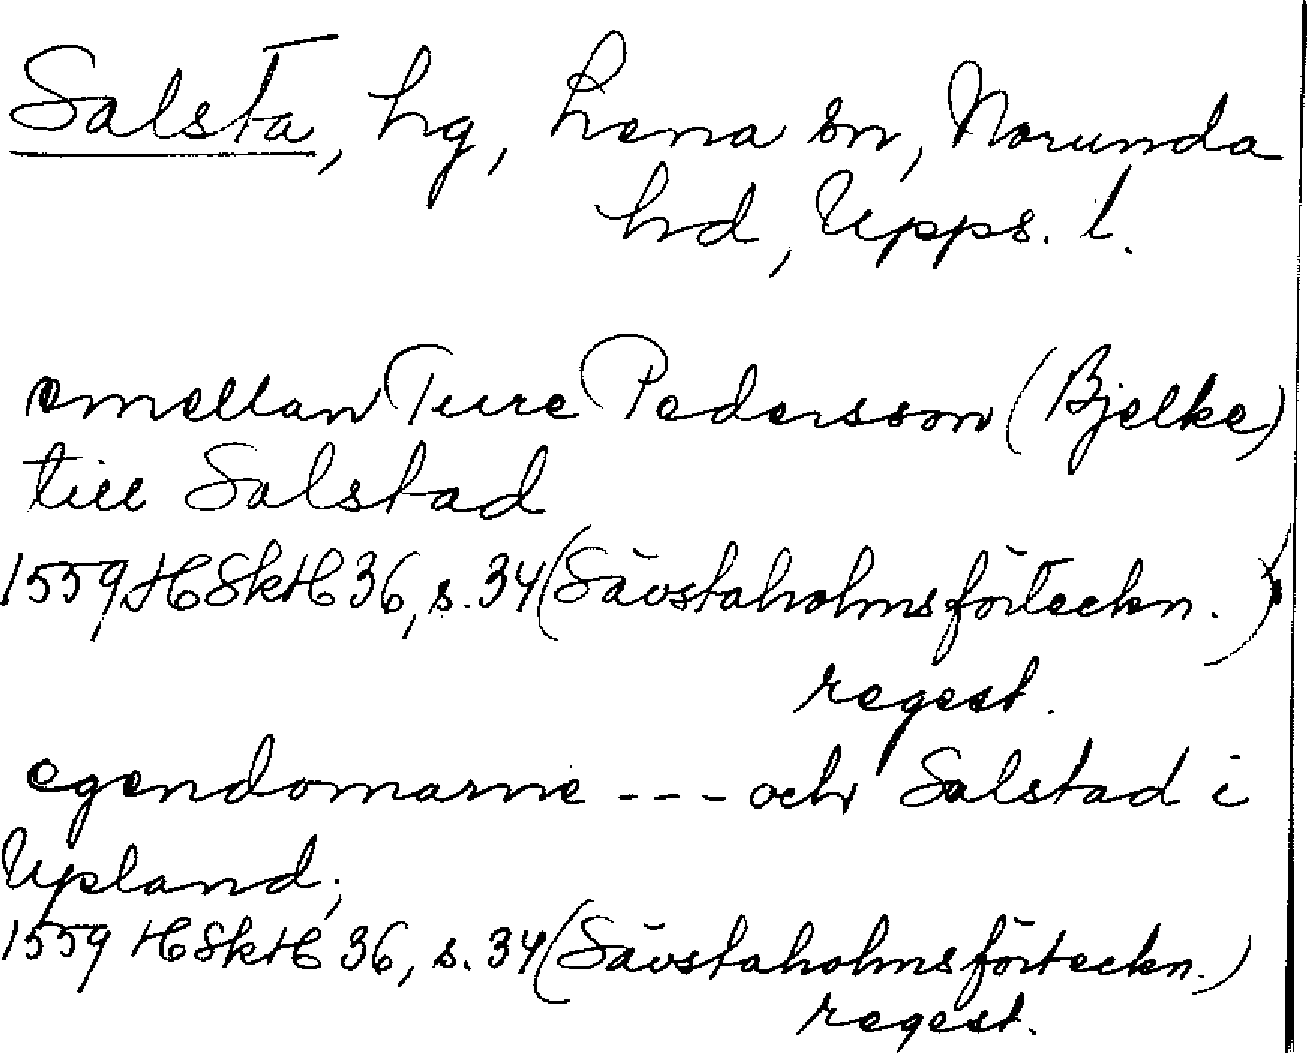 Salsta, hg, Lena sn, Norunda
hd, Upps. l.
emellan Ture Pedersson (Bjelke)
till Salstad
1559 HSkH 36, s. 34 (Sävstaholmsförteckn.)
regest.
egendomarne --- och Salstad i
Upland;
1559 HSkH 36, s. 34 (Sävstaholmsförteckn.)
regest.